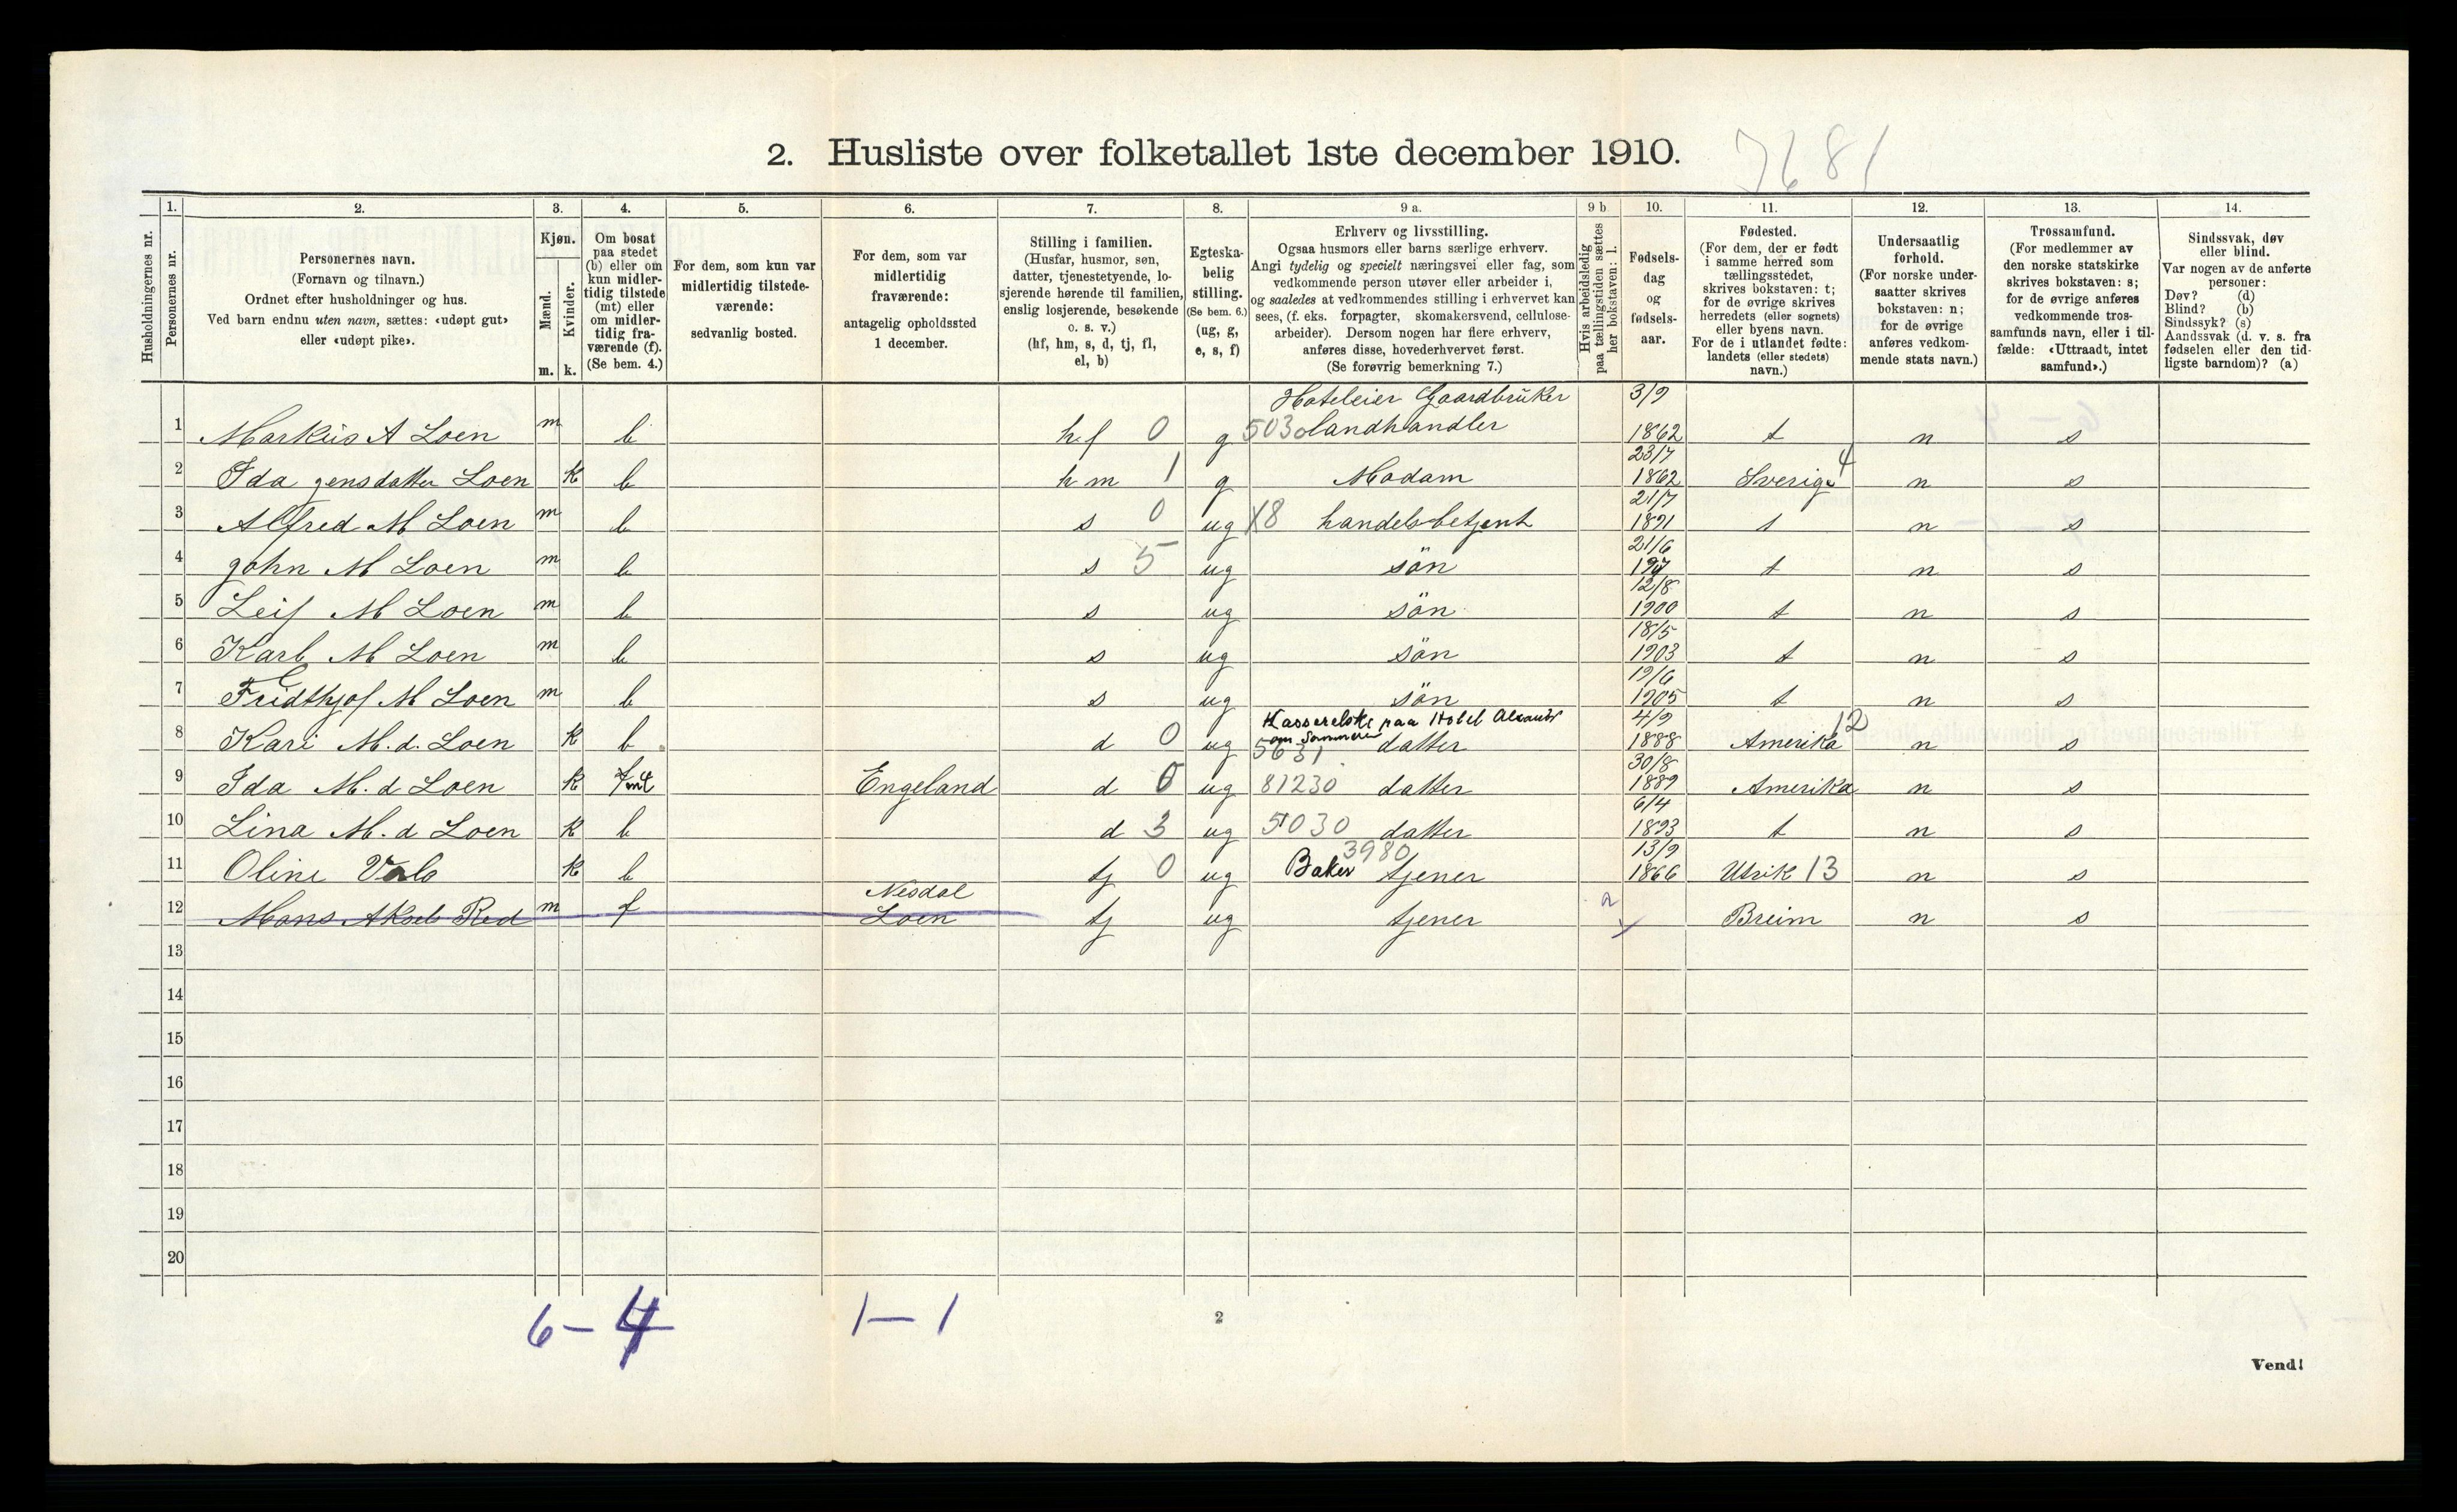 2. Husliste over folketallet 1ste december 1910.
7681
Husholdningernes nr.
1. Personernes nr.
2. Personernes navn.
(Fornavn og tilnavn.)
Ordnet efter husholdninger og hus.
Ved barn endnu uten navn, sættes: «udøpt gut»
eller «udøpt pike».
3. Kjøn.
Mænd. m.
Kvinder. k.
4. Om bosat
paa stedet
(b) eller om
kun midler-
tidig tilstede
(mt) eller
om midler-
tidig fra-
værende (f).
(Se bem. 4.)
5. For dem, som kun var
midlertidig tilstede-
værende:
sedvanlig bosted.
6. For dem, som var
midlertidig
fraværende:
antagelig opholdssted
1 december.
7. Stilling i familien.
(Husfar, husmor, søn,
datter, tjenestetyende, lo-
sjerende hørende til familien,
enslig losjerende, besøkende
o. s. v.)
(hf, hm, s, d, tj, fl,
el, b)
8. Egteska-
belig
stilling.
(Se bem. 6.)
(ug, g,
e, s, f)
9 a. Erhverv og livsstilling.
Ogsaa husmors eller barns særlige erhverv.
Angi tydelig og specielt næringsvei eller fag, som
vedkommende person utøver eller arbeider i,
og saaledes at vedkommendes stilling i erhvervet kan
sees, (f. eks. forpagter, skomakersvend, cellulose-
arbeider). Dersom nogen har flere erhverv,
anføres disse, hovederhvervet først.
(Se forøvrig bemerkning 7.)
9 b Hvis arbeidsledig
paa tællingstiden sættes
her bokstaven: l.
10. Fødsels-
dag
og
fødsels-
aar.
11. Fødested.
(For dem, der er født
i samme herred som
tællingsstedet,
skrives bokstaven: t;
for de øvrige skrives
herredets (eller sognets)
eller byens navn.
For de i utlandet fødte:
landets (eller stedets)
navn.)
12. Undersaatlig
forhold.
(For norske under-
saatter skrives
bokstaven: n;
for de øvrige
anføres vedkom-
mende stats navn.)
13. Trossamfund.
(For medlemmer av
den norske statskirke
skrives bokstaven: s;
for de øvrige anføres
vedkommende tros-
samfunds navn, eller i til-
fælde: «Uttraadt, intet
samfund».)
14. Sindssvak, døv
eller blind.
Var nogen av de anførte
personer:
Døv? (d)
Blind? (b)
Sindssyk? (s)
Aandssvak (d. v. s. fra
fødselen eller den tid-
ligste barndom)? (a)
Hoteleier Gaardbruker 3/9
1 Markus A Loen m b hf 0 g 5030 landhandler 1862 t n s
23/7 4
2 Ida Jensdatter Loen k b hm 1 g Madam 1862 Sverige n s
21/7
3 Alfred M Loen m b s 0 ug X8 handelsbetjent 1891 t n s
21/6
4 John M Loen m b s 5 ug sön t n s
12/8
5 Leif M Loen m b s ug sön 1900 t n s
18/5
6 Karl M Loen m b s ug sön 1903 t n s
19/6
7 Fridthjof M Loen m b s ug sön 1905 t n s
paa Hotel 4/9 12
om Sommeren
8 Kari M. d. Loen k b d 0 ug 5631 datter 1888 Amerika n s
30/8
9 Ida M. d Loen k Engeland d 0 ug 81230 datter 1889 Amerika n s
6/4
10 Lina M. d Loen k b d 3 ug 5030 datter 1893 t n s
3980 13/9
11 Oline k b tj 0 ug Baker tjener 1866 Utvik 13 n s
Nesdal
12 Mons Aksels Red m f Loen tj ug tjener Breim n s
13
14
15
16
17
18
19
20
6 - 4 1 - 1
2
Vend!